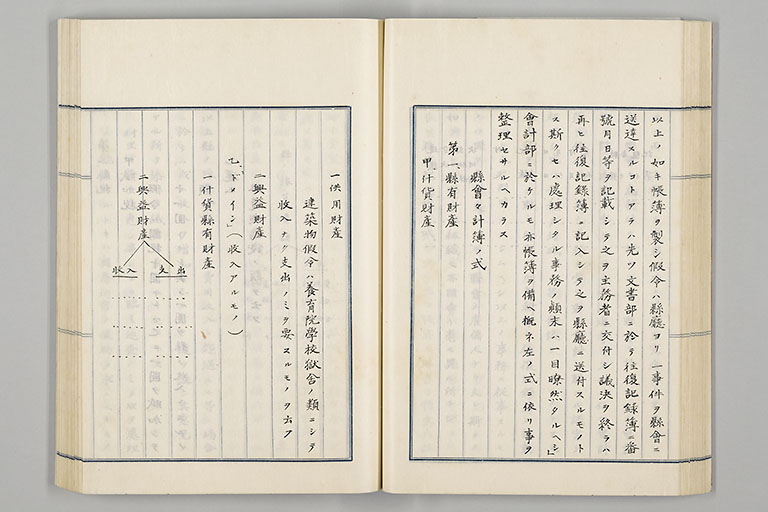 以上ノ如キ帳簿ヲ製シ假令ハ縣廳ヨリ一事件ヲ縣會ニ
送達スルコトアラハ先ツ文書部ニ於テ往復記録簿ニ番
號月日等ヲ記載シテ之ヲ主務者ニ交付シ議決ヲ終ラハ
再ヒ往復記録簿ニ記入シテ之ヲ縣廳ニ送付スルモノト
ス斯クセハ處理シタル事務ノ顛末ハ一目瞭然タルヘシ」
會計部ニ於ケルモ亦帳簿ヲ備ヘ概ネ左ノ式ニ依リ事ヲ
整理セサルヘカラス
縣會々計簿ノ式
第一、縣有財産
甲、什貨財産
一供用財産
建築物假令ハ養育院學校獄舎ノ類ニシテ
收入ナク支出ノミヲ要スルモノヲ云フ
二興益財産
乙、「ドメイン」(收入アルモノ)
一什貨縣有財産
二興益財産
支出
收入